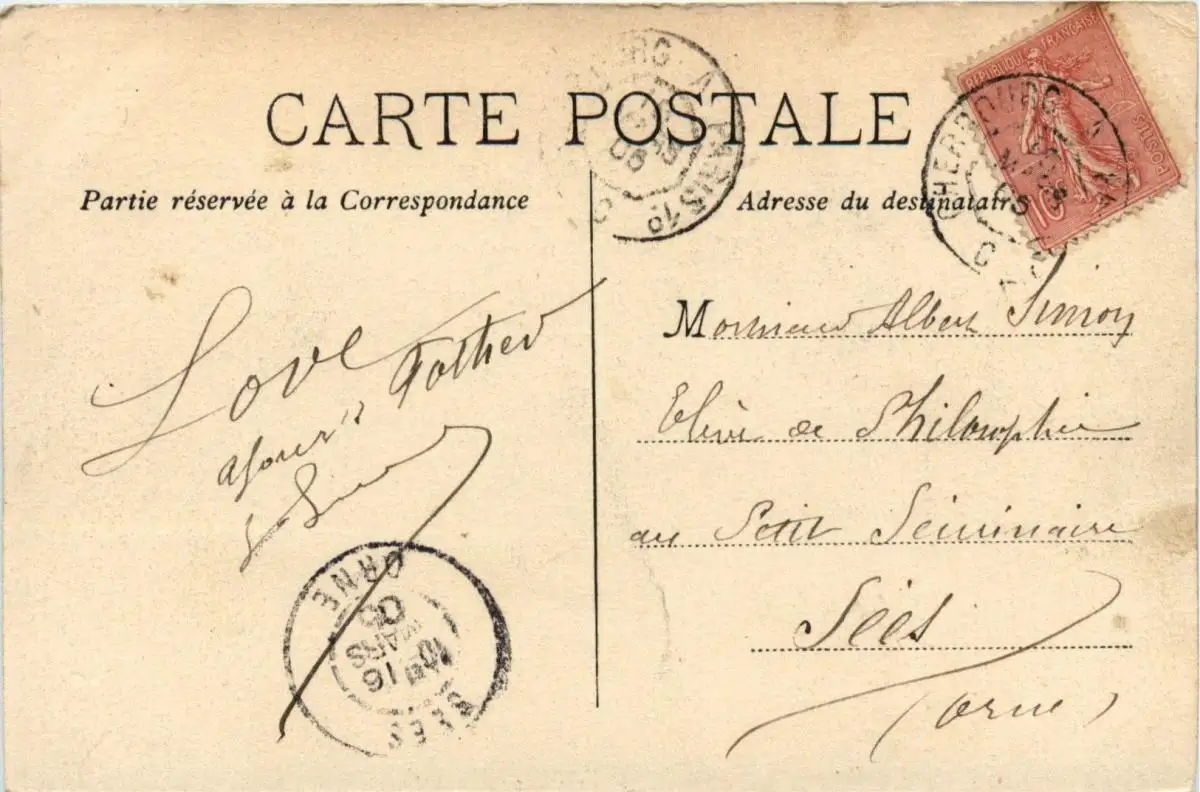 CARTE POSTALE
Partie réservée à la Correspondance
Adresse du destinataire
RÉPUBLIQUE FRANÇAISE
POSTES
10
CHERBOURG A
MARS
A PARIS 1°
Love Father
Monsieur Albert Simon
Elève de Philosophie
au Petit Séminaire
Sées
(Orne)
SÉES
16
MARS
ORNE